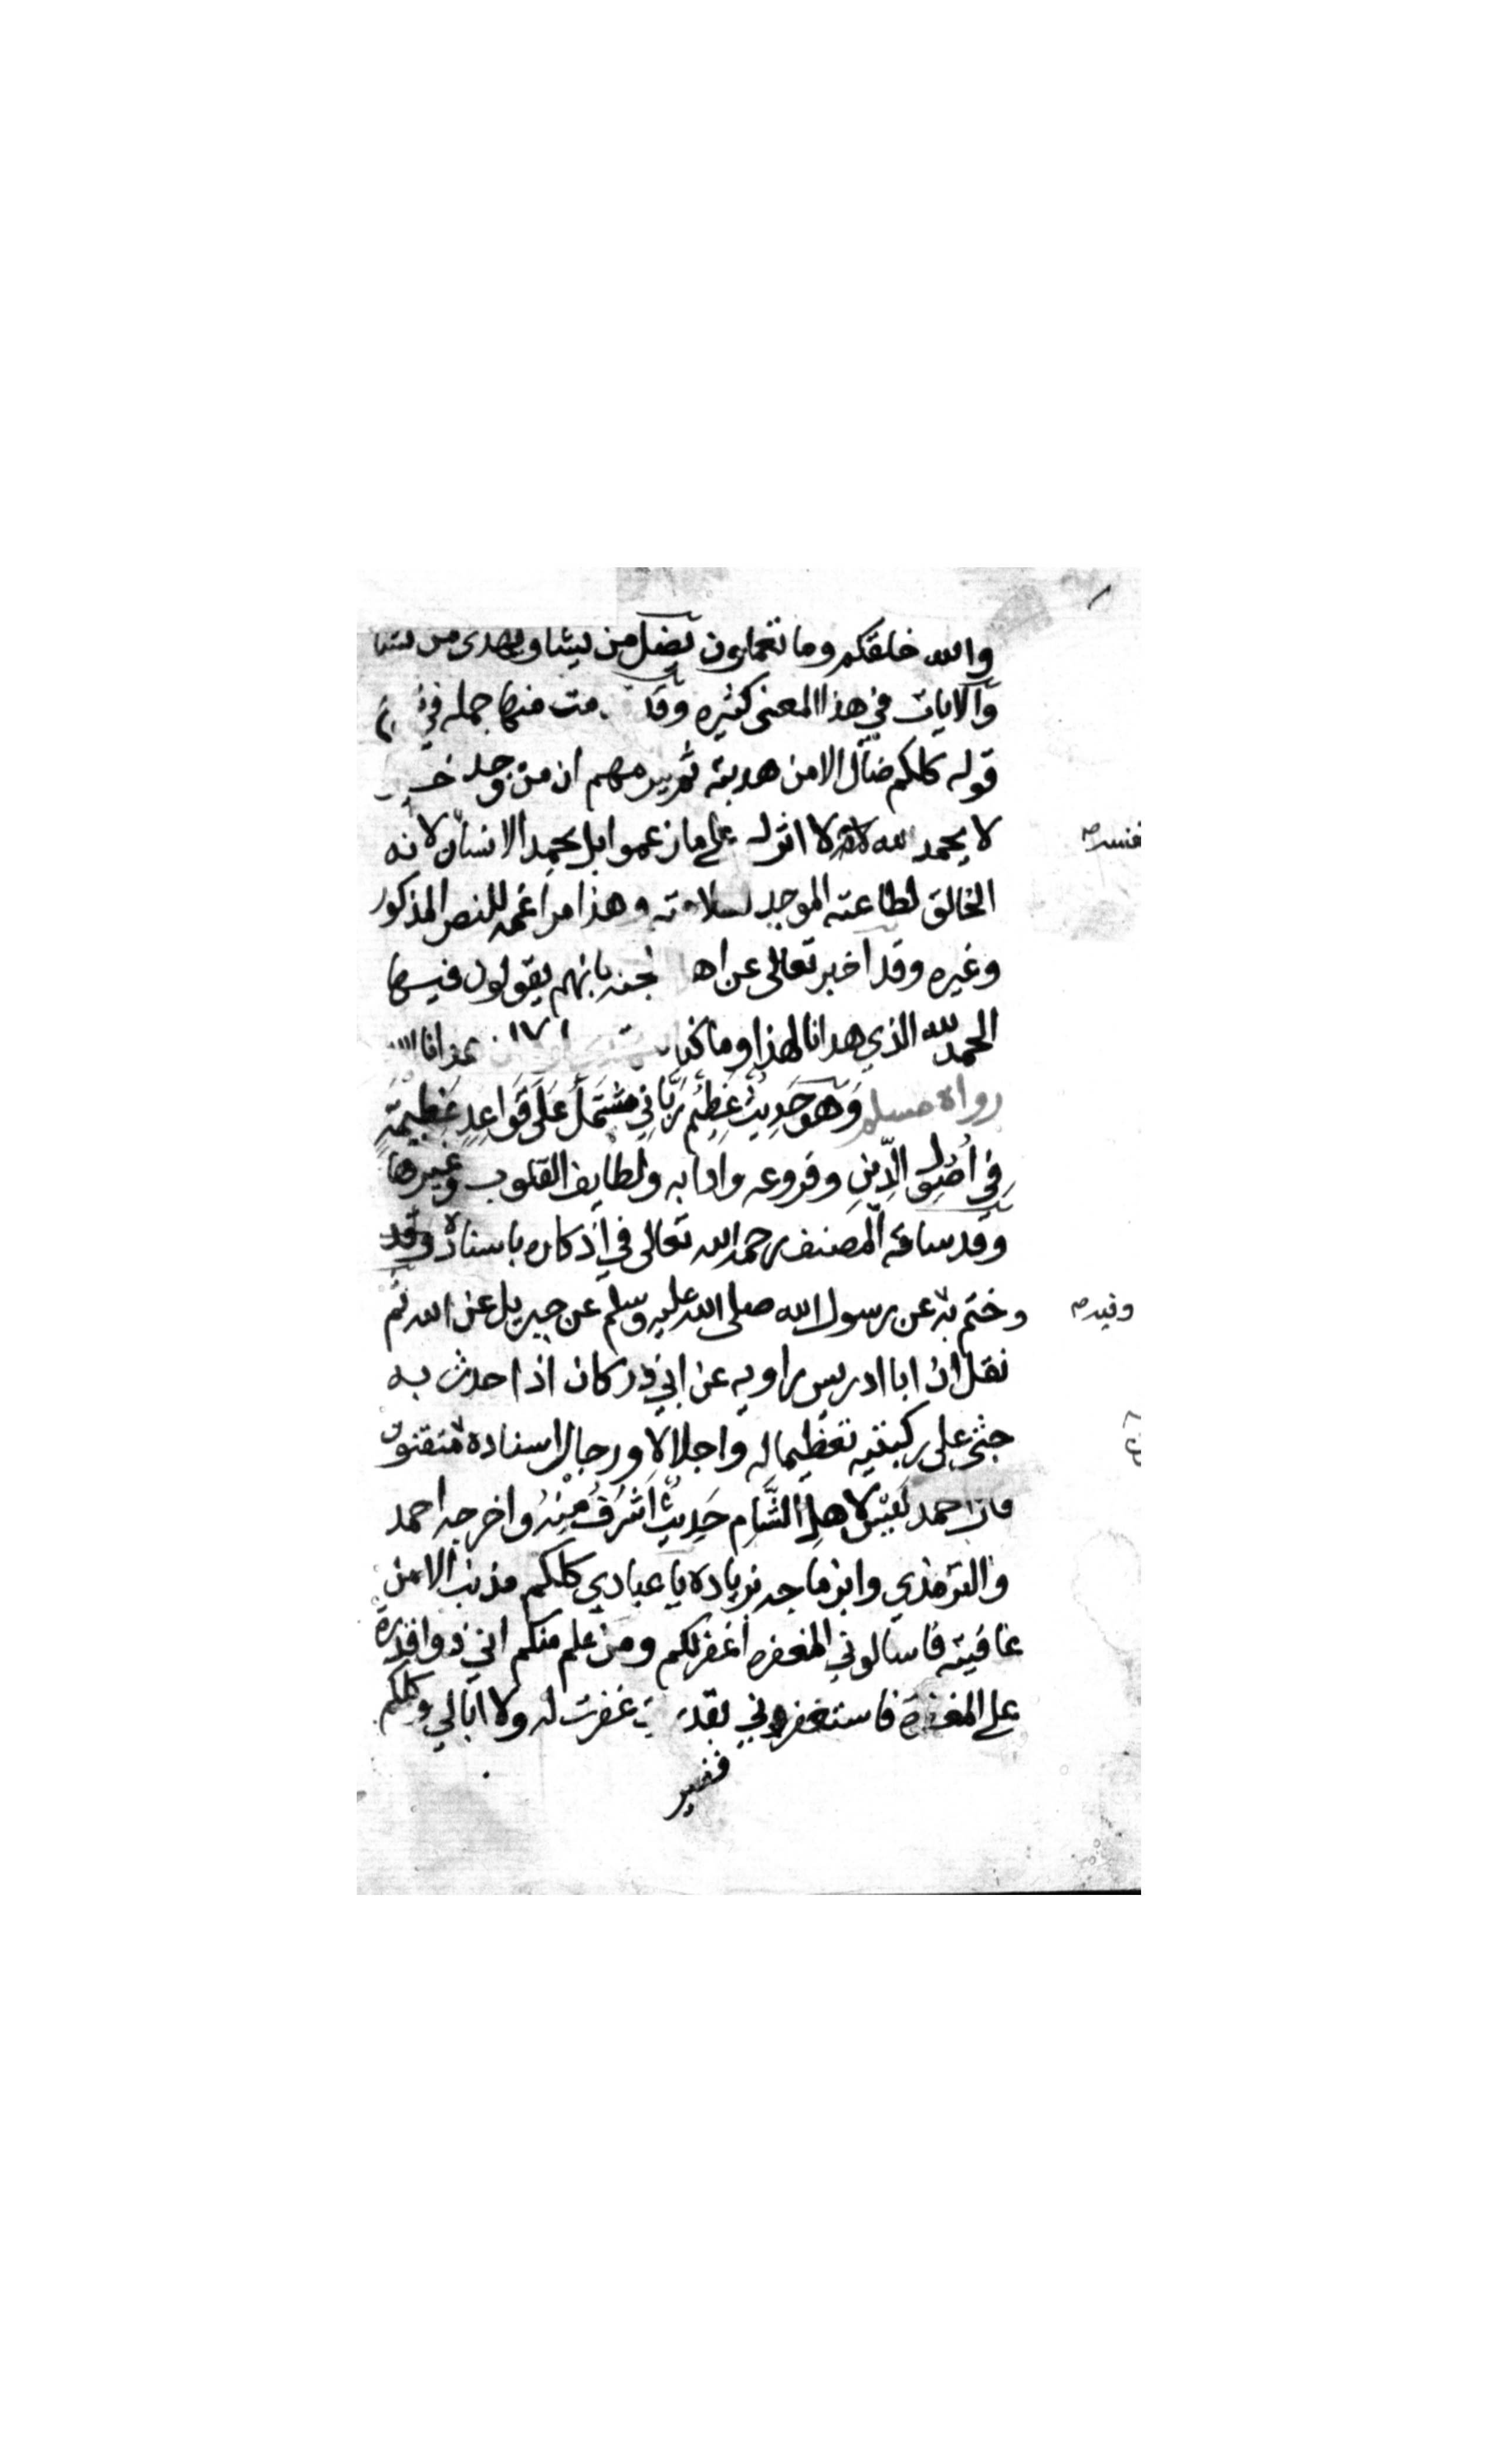 والله خلقكم وما تعملون يضل من يشا ويهدي من يشا
والايات في هذا المعنى كثيره وقد مت منها جمله في
قوله كلكم ضال الا من هديته ثم يرمهم ان من وجد
لا يحمد الله لانه لا اثر له على ما زعموا بل يحمد الانسان لانه
نفسه
الخالق لطاعته الموجد لسلامته وهذا مراغمه للنص المذكور
وغيره وقد اخبر تعالى عن اهل لجنه بانهم يقولون فيها
الحمد لله الذي هدانا لهذا وما كنا هدانا الله
رواه مسلم وَهو حَدِيثٌ عَظِيْم رَبَّانِي مشتمل عَلَى قَوَاعِدٍ عَظِيمَةٍ
فِي أصُولِ الدِّينِ وفروعه وادابه ولطايف القلوب وغيرها
وقد ساقه المصنف رحمه الله تعالى في اذكاره باسناده وقد
وختم به عن رسول الله صلى الله عليه وسلم عن جبريل عن الله ثم
وفيه
نقل ان ابا ادريس راويه عن ابي ذر كان اذا حدث به
جثى على ركبتيه تعظيما له واجلالا ورجال اسناده متقنون
قال احمد لَيْسَ لاهلِ الشَّامِ حَدِيثٌ اَشْرَفُ مِنْهُ واخرجه احمد
والترمذي وابن ماجه بزياده يا عبادي كلكم مذنب الا من
عافيته فاسالوني المغفره اغفر لكم ومن علم منكم اني ذو اقدرة
على المغفرة فاستغفروني بقدرتي غفرت له ولا ابالي وكلكم
فقير